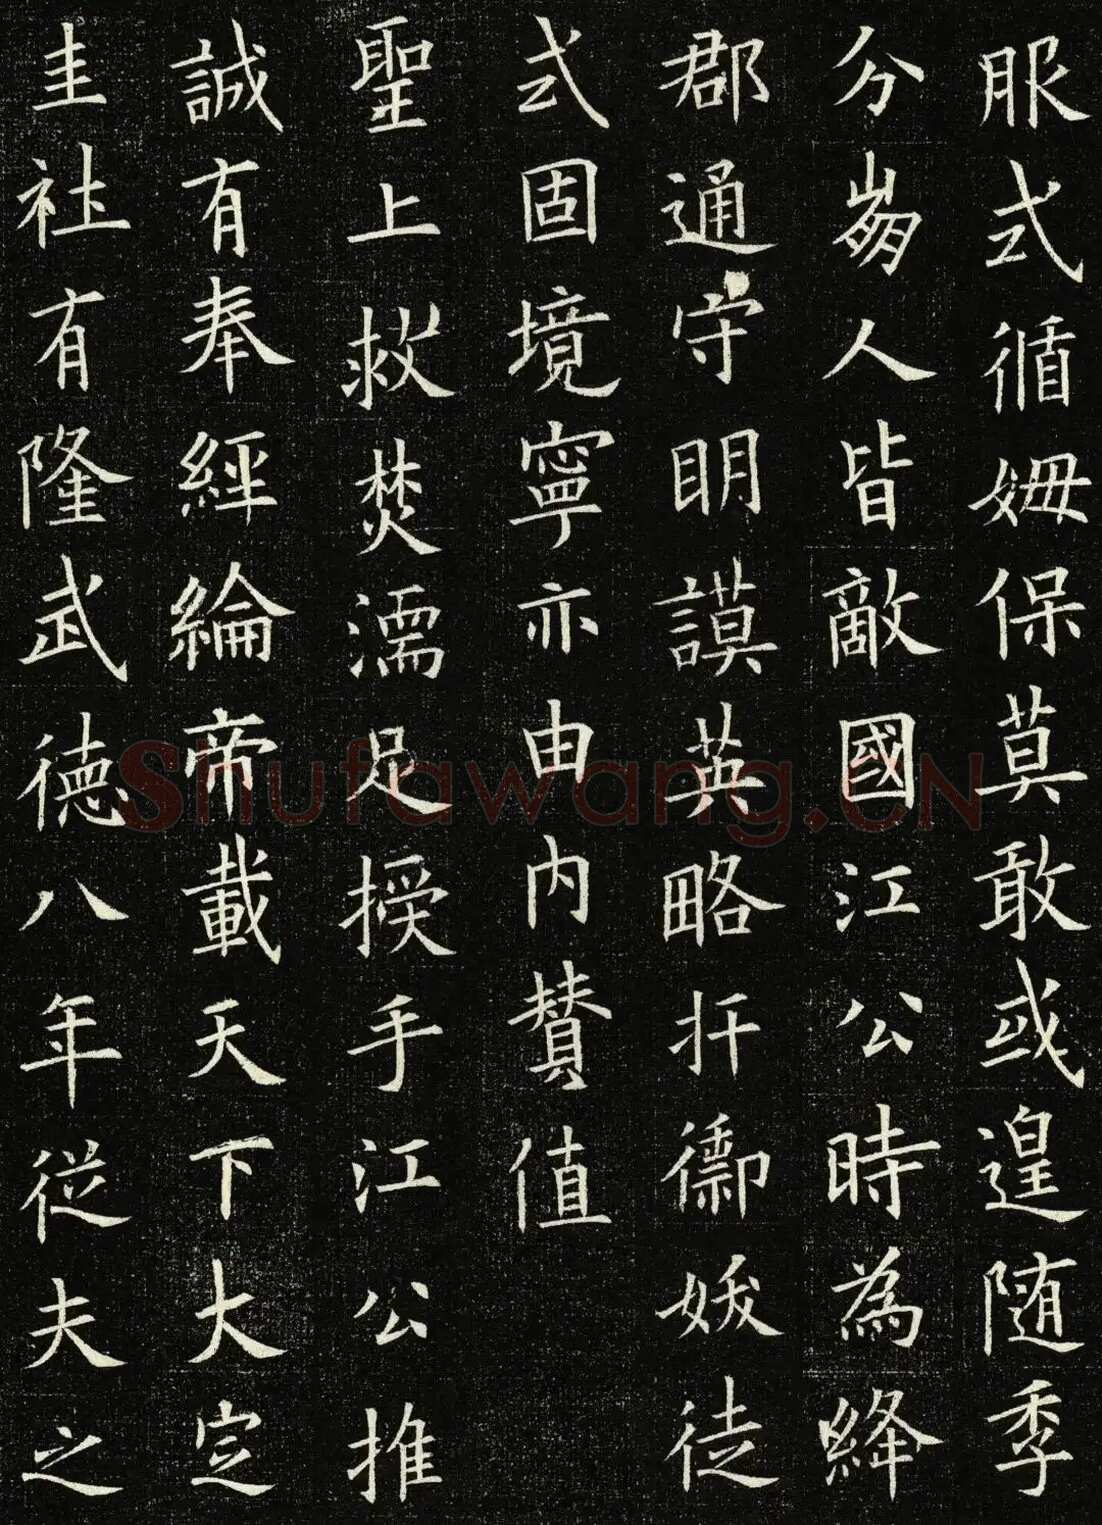 服式循姆保莫敢或遑随季
分崩人皆敵國江公時為絳
郡通守明謨英略扞禦媛徒
式固境寧亦由内賛值
聖上救焚濡足授手江公推
誠有奉經綸帝載天下大定
圭社有隆武德八年從夫之
Shufawang.CN